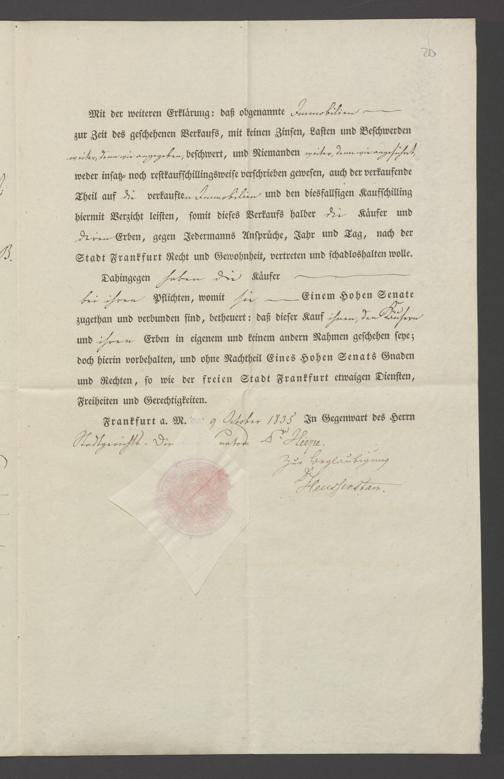 20
Mit der weiteren Erklärung: daß obgenannte Immobilien
zur Zeit des geschehenen Verkaufs, mit keinen Zinsen, Lasten und Beschwerden
weiter, denn wie angegeben, beschwert, und Niemanden weiter, denn wie angeführt,
weder insatz- noch restkaufschillingsweise verschrieben gewesen, auch der verkaufende
Theil auf die verkauften Immobilien und den diesfallsigen Kaufschilling
hiermit Verzicht leisten, somit dieses Verkaufs halber die Käufer und
deren Erben, gegen Jedermanns Ansprüche, Jahr und Tag, nach der
Stadt Frankfurt Recht und Gewohnheit, vertreten und schadloshalten wolle.
Dahingegen haben die Käufer
bei ihren Pflichten, womit sie Einem Hohen Senate
zugethan und verbunden sind, betheuert: daß dieser Kauf ihnen, den Käufern
und ihren Erben in eigenem und keinem andern Nahmen geschehen seye;
doch hierin vorbehalten, und ohne Nachtheil Eines Hohen Senats Gnaden
und Rechten, so wie der freien Stadt Frankfurt etwaigen Diensten,
Freiheiten und Gerechtigkeiten.
Frankfurt a. M. 9 October 1835 In Gegenwart des Herrn
Stadtgerichts-
Zur Beglaubigung
B.